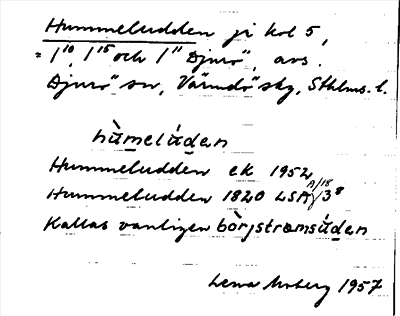 Hummeludden ji kol 5,
= 1¹⁰, 1¹⁵ och 1¹¹ Djurö, avs.
Djurö sn, Värmdö skg, Sthlms. l.
hùmelúden
Hummeludden ek 1952
Hummeludden 1820 LSA A/18 3⁸
Kallas vanligen bòrjstromsúden
Lena Moberg 1957